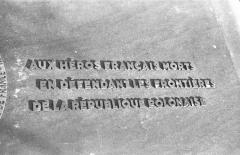 AUX HÉROS FRANÇAIS MORTS
EN DÉFENDANT LES FRONTIÈRES
DE LA RÉPUBLIQUE POLONAISE